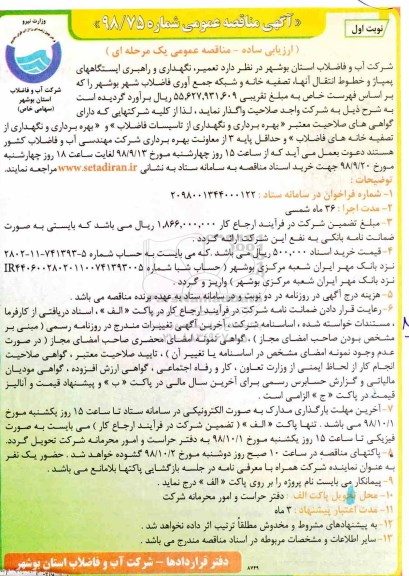 نوبت اول
« آگهی مناقصه عمومی شماره ۹۸/۷۵ »
وزارت نیرو
شرکت آب و فاضلاب
استان بوشهر
(سهامی خاص)
( ارزیابی ساده - مناقصه عمومی یک مرحله ای )
شرکت آب و فاضلاب استان بوشهر در نظر دارد تعمیر، نگهداری و راهبری ایستگاههای
پمپاژ و خطوط انتقال آنها، تصفیه خانه و شبکه جمع آوری فاضلاب شهر بوشهر را که
بر اساس فهرست خاص به مبلغ تقریبی ۵۵,۶۲۷,۹۳۱,۶۰۹ ریال برآورد گردیده است
به شرح ذیل به شرکت واجد صلاحیت واگذار نماید ، لذا از کلیه شرکتهایی که دارای
گواهی های صلاحیت معتبر « بهره برداری و نگهداری از تاسیسات فاضلاب » و « بهره برداری و نگهداری از
تصفیه خانه های فاضلاب » و حداقل پایه ۳ از معاونت بهره برداری شرکت مهندسی آب و فاضلاب کشور
هستند دعوت بعمل می آید که از ساعت ۱۵ روز چهارشنبه مورخ ۹۸/۹/۱۳ لغایت ساعت ۱۸ روز چهارشنبه
مورخ ۹۸/۹/۲۰ جهت خرید اسناد مناقصه به سامانه ستاد به نشانی www.setadiran.ir مراجعه نمایند.
توضیحات :
۱- شماره فراخوان در سامانه ستاد : ۲۰۹۸۰۰۱۳۴۴۰۰۰۱۲۲
۲- مدت اجرا : ۳۶ ماه شمسی
۳- مبلغ تضمین شرکت در فرآیند ارجاع کار ۱,۸۶۶,۰۰۰,۰۰۰ ریال می باشد که بایستی به صورت
ضمانت نامه بانکی به نفع این شرکت ارائه گردد .
۴- قیمت خرید اسناد ۵۰۰,۰۰۰ ریال می باشد .که می بایست به حساب شماره ۵-۷۴۱۳۹۳-۱۱-۲۸۰۲
نزد بانک مهر ایران شعبه مرکزی بوشهر ( حساب شبا شماره IR۴۴۰۶۰۰۲۸۰۲۰۱۱۰۰۷۴۱۳۹۳۰۰۵
نزد بانک مهر ایران شعبه مرکزی بوشهر ) واریز و گردد .
۵- هزینه درج آگهی در روزنامه در دو نوبت و در سامانه ستاد به عهده برنده مناقصه می باشد .
۶- رعایت قرار دادن ضمانت نامه شرکت در فرآیند ارجاع کار در پاکت « الف » ، اسناد دریافتی از کارفرما
، مستندات خواسته شده ، اساسنامه شرکت، آخرین آگهی تغییرات مندرج در روزنامه رسمی ( مبنی بر
مشخص بودن صاحب امضای مجاز ) ، گواهی نمونه امضای محضری صاحب امضای مجاز ( در صورت
عدم وجود نمونه امضای مشخص در اساسنامه یا تغییر آن ) ، تایید صلاحیت معتبر ، گواهی صلاحیت
انجام کار از لحاظ ایمنی از وزارت تعاون ، کار و رفاه اجتماعی ، گواهی ارزش افزوده ، گواهی مودیان
مالیاتی و گزارش حسابرس رسمی برای آخرین سال مالی در پاکت « ب » و پیشنهاد قیمت و آنالیز
قیمت در پاکت « ج » الزامی است .
۷- آخرین مهلت بارگذاری مدارک به صورت الکترونیکی در سامانه ستاد تا ساعت ۱۵ روز یکشنبه مورخ
۹۸/۱۰/۱ می باشد . تنها پاکت « الف » ( تضمین شرکت در فرآیند ارجاع کار ) می بایست به صورت
فیزیکی تا ساعت ۱۵ روز یکشنبه مورخ ۹۸/۱۰/۱ به دفتر حراست و امور محرمانه شرکت تحویل گردد.
۸- پاکتهای مناقصه در ساعت ۱۰ صبح روز دوشنبه مورخ ۹۸/۱۰/۲ گشوده خواهد شد . حضور یک نفر
به عنوان نماینده شرکت همراه با معرفی نامه در جلسه بازگشایی پاکتها بلامانع می باشد .
۹- پیمانکار می بایست نام پروژه را بر روی پاکت « الف » درج نماید .
۱۰- محل تحویل پاکت الف : دفتر حراست و امور محرمانه شرکت
۱۱- مدت اعتبار پیشنهاد : ۳ ماه
۱۲- به پیشنهادهای مشروط و مخدوش مطلقاً ترتیب اثر داده نخواهد شد .
۱۳- سایر اطلاعات و مشخصات مربوطه در اسناد مناقصه مندرج می باشد .
۸۷۴۹
دفتر قراردادها - شرکت آب و فاضلاب استان بوشهر